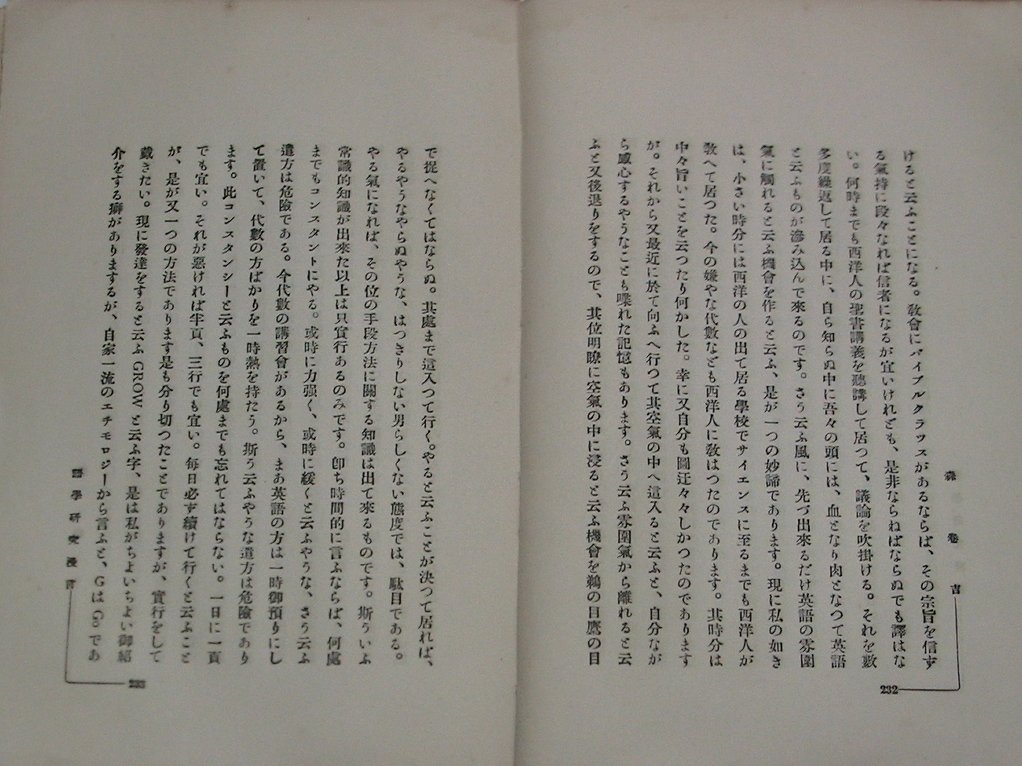 けると云ふことになる。敎會にバイブルクラツスがあるならば、その宗旨を信ず
る氣持に段々なれば信者になるが宜いけれども、是非ならねばならぬでも譯はな
い。何時までも西洋人の聖書講義を聽講して居つて、議論を吹掛ける。それを數
多度繰返して居る中に、自ら知らぬ中に吾々の頭には、血となり肉となつて英語
と云ふものが滲み込んで來るのです。さう云ふ風に、先づ出來るだけ英語の雰圍
氣に觸れると云ふ機會を作ると云ふ、是が一つの妙諦であります。現に私の如き
は、小さい時分には西洋の人の出て居る學校でサイエンスに至るまでも西洋人が
敎へて居つた。今の嫌やな代數なども西洋人に敎はつたのであります。其時分は
中々旨いことを云つたり何かした。幸に又自分も圖迂々々しかつたのであります
が。それから又最近に於て向ふへ行つて其空氣の中へ這入ると云ふと、自分なが
ら感心するやうなことも喋れた記憶もあります。さう云ふ雰圍氣から離れると云
ふと又後退りをするので、其位明瞭に空氣の中に浸ると云ふ機會を鵜の目鷹の目
卷
書
232
で從へなくてはならぬ。其處まで這入つて行く。やると云ふことが決つて居れば、
やるやうなやらぬやうな、はつきりしない男らしくない態度では、駄目である。
やる氣になれば、その位の手段方法に關する知識は出て來るものです。斯ういふ
常識的知識が出來た以上は只實行あるのみです。卽ち時間的に言ふならば、何處
までもコンスタントにやる。或時に力强く、或時に緩くと云ふやうな、さう云ふ
遣方は危險である。今代數の講習會があるから、まあ英語の方は一時御預りにし
て置いて、代數の方ばかりを一時熱を持たう。斯う云ふやうな遣方は危險であり
ます。此コンスタンシーと云ふものを何處までも忘れてはならない。一日に一頁
でも宜い。それが惡ければ半頁、三行でも宜い。每日必ず續けて行くと云ふこと
が、是が又一つの方法であります是も分り切つたことでありますが、實行をして
戴きたい。現に發達をすると云ふGROWと云ふ字、是は私がちよいちよい御紹
介をする癖がありまするが、自家一流のエチモロジーから言ふと、GはGoであ
語學研究漫言
233